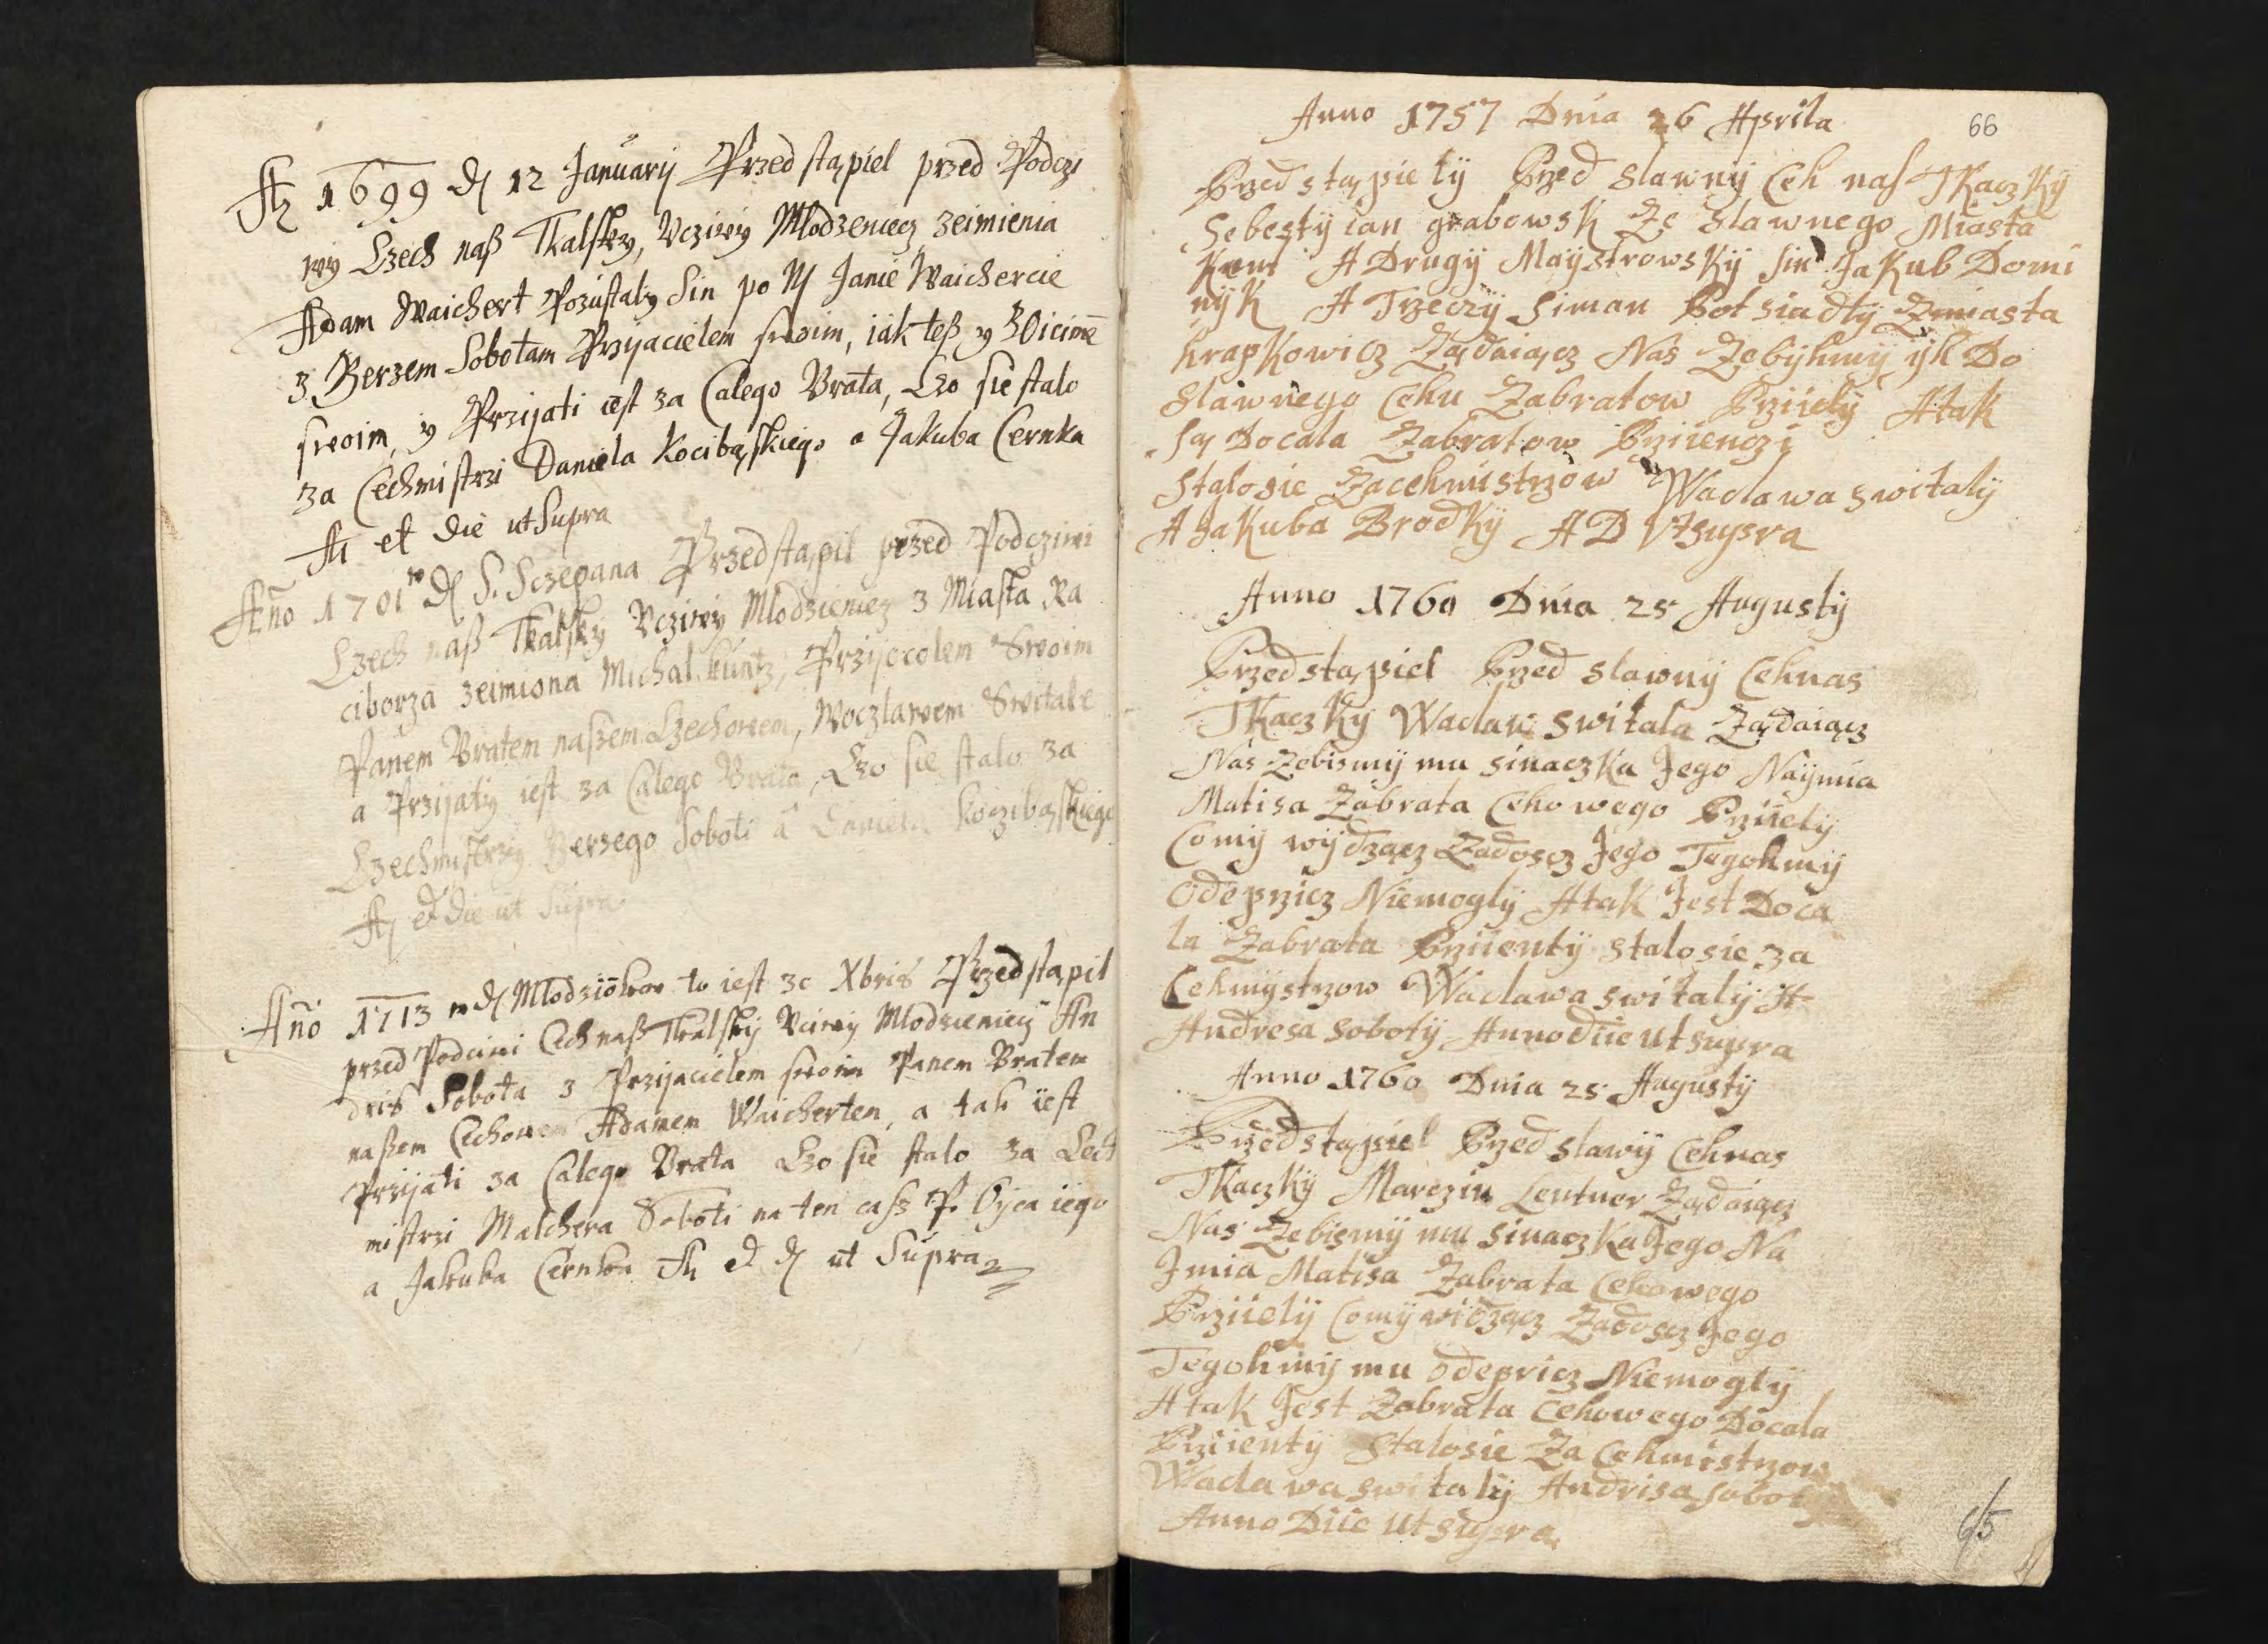 Aᵒ 1699 d 12 January Przed stąpiel przed Podczi
wy Czech naß Tkalsky, Vcziwy Mlodzeniecz zeimienia
Adam Waichert Pozustaly Sin po N Janie Waichercie
z Berzem Sobotam Przyacielem swoim, iak teß y
swoim, y Przijati iest za Calego Brata, Czo sie stalo
za Cechmistrzi Daniela Kocibąskiego a Jakuba Cernka
A et die ut Supra
Año 1701 d S. Sczepana Przedstąpil przed Podcziwi
Czech naß Tkalsky Vcziwy Mlodzieniecz z Miasta Ra
ciborza zeimiona Michal Kuntz, Przijocolem Swoim
Panem Bratem naßem Czechowem, Woczlawem Switale
a Przijaty iest za Calego Brata, Czo sie stalo za
Czechmistrzy Berzego Soboti a Daniela Koczibąskiego
A et die ut Supra
Año 1713 d Mlodziokow to iest 30 Xbris Przedstąpil
przed Podciwi Cech naß Tkalsky Vciwy Mlodzieniecz An
dris Sobota z Przijacielem swoim Panem Bratem
naßem Cechowem Adamem Waicherten, a tak iest
Przijati za Calego Brata Czo sie stalo za Cech
mistrzi Malchera Soboti na ten cass P. Oyca iego
a Jakuba Cernka A et d ut Supra
66
Anno 1757 Dnia 26 Aprila
Przed stąpie ly Przed slawny Ceh nas Tkaczky
Sebestyian grabowsk Ze Slawnego Miasta
A Drugy Maystrowsky sin Jakub Domi
nyk A Trzeczy Siman Pot siadly Zmiasta
krapkowicz Ządaiącz Nas Zebyhmy yh Do
Slawnego Cehu Zabratow Prziiely Atak
Są Docala Zabratow Prziienczi
Stalosie Zacehmistrzow Waclawa switaly
A Jakuba Brodky A D Vtsupra
Anno 1760 Dnia 25 Augusty
Przedstąpiel Przed slawny Cehnas
Tkaczky Waclaw switala Ządaiącz
Nas Zebismy mu sinaczka Jego Naymia
Matisa Zabrata Cehowego Prziiely
Comy wydzącz Zadoscz Jego Tegohmy
Odeprzicz Niemogly Atak Jest Doca
la Zabrata Prziienty stalosie za
Cehmystrzow Waclawa switaly A
Andresa soboty Anno diie ut supra
Anno 1760 Dnia 25 Augusty
Przedstąpiel Przed slawy Cehnas
Tkaczky Marczin Lentner Ządaiącz
Nas Zebismy mu sinaczka Jego Na
Jmia Matisa Zabrata Cehowego
Prziiely Comy widzącz Zadoscz Jego
Tegohmy mu odepricz Niemogly
Atak Jest Zabrata Cehowego Docala
Prziienty Stalosie Za Cehmistrzow
Waclawa switaly Andrisa
Anno Diie Ut supra
65